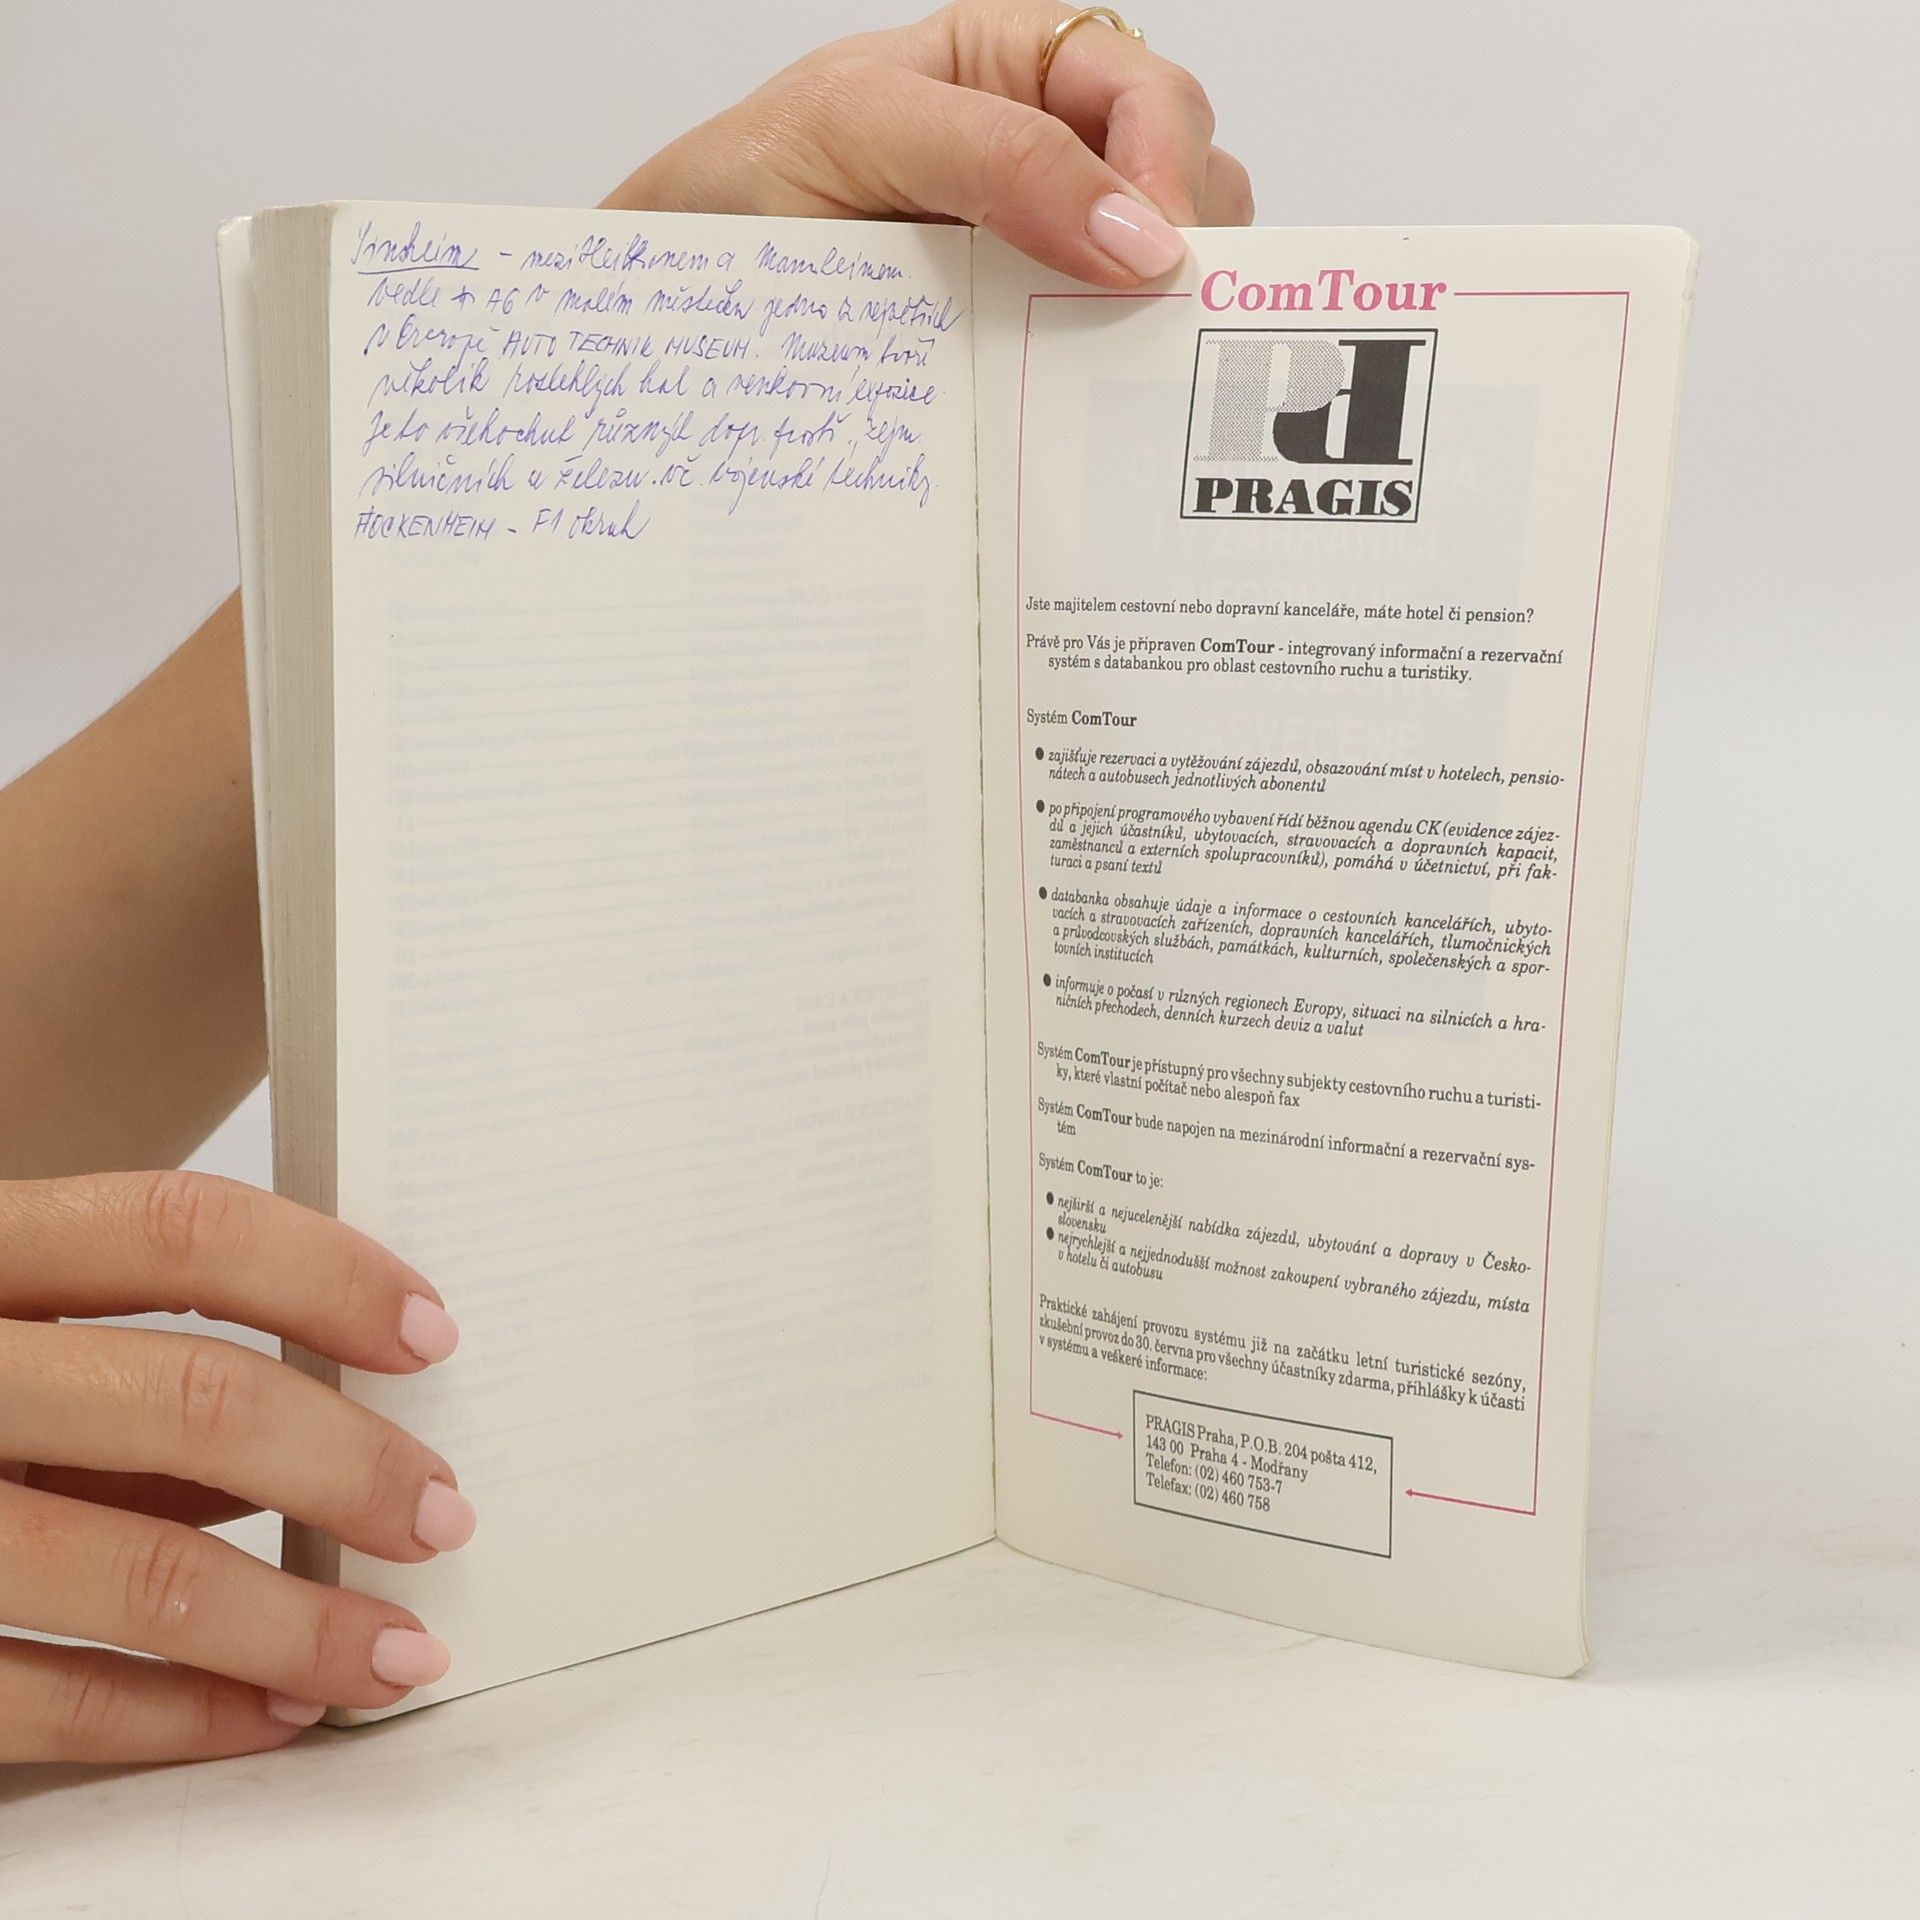 Sinsheim - mezi Heilbronem a Mannheimem.
Vedle A6 v malém městečku jedno z největších
v Evropě AUTO TECHNIK MUSEUM. Muzeum tvoří
několik rozlehlých hal a venkovní expozice.
Je to všehochuť různých dopr. prostř., zejm.
silničních a železn. vč. vojenské techniky.
HOCKENHEIM - F1 okruh
ComTour
PRAGIS
Jste majitelem cestovní nebo dopravní kanceláře, máte hotel či pension?
Právě pro Vás je připraven ComTour - integrovaný informační a rezervační
systém s databankou pro oblast cestovního ruchu a turistiky.
Systém ComTour
● zajišťuje rezervaci a vytěžování zájezdů, obsazování míst v hotelech, pensio-
nátech a autobusech jednotlivých abonentů
● po připojení programového vybavení řídí běžnou agendu CK (evidence zájez-
dů a jejich účastníků, ubytovacích, stravovacích a dopravních kapacit,
zaměstnanců a externích spolupracovníků), pomáhá v účetnictví, při fak-
turaci a psaní textů
● databanka obsahuje údaje a informace o cestovních kancelářích, ubyto-
vacích a stravovacích zařízeních, dopravních kancelářích, tlumočnických
a průvodcovských službách, památkách, kulturních, společenských a spor-
tovních institucích
● informuje o počasí v různých regionech Evropy, situaci na silnicích a hra-
ničních přechodech, denních kurzech deviz a valut
Systém ComTour je přístupný pro všechny subjekty cestovního ruchu a turisti-
ky, které vlastní počítač nebo alespoň fax
Systém ComTour bude napojen na mezinárodní informační a rezervační sys-
tém
Systém ComTour to je:
● nejširší a nejucelenější nabídka zájezdů, ubytování a dopravy v Česko-
slovensku
● nejrychlejší a nejjednodušší možnost zakoupení vybraného zájezdu, místa
v hotelu či autobusu
Praktické zahájení provozu systému již na začátku letní turistické sezóny,
zkušební provoz do 30. června pro všechny účastníky zdarma, přihlášky k účasti
v systému a veškeré informace:
PRAGIS Praha, P.O.B. 204 pošta 412,
143 00 Praha 4 - Modřany
Telefon: (02) 460 753-7
Telefax: (02) 460 758